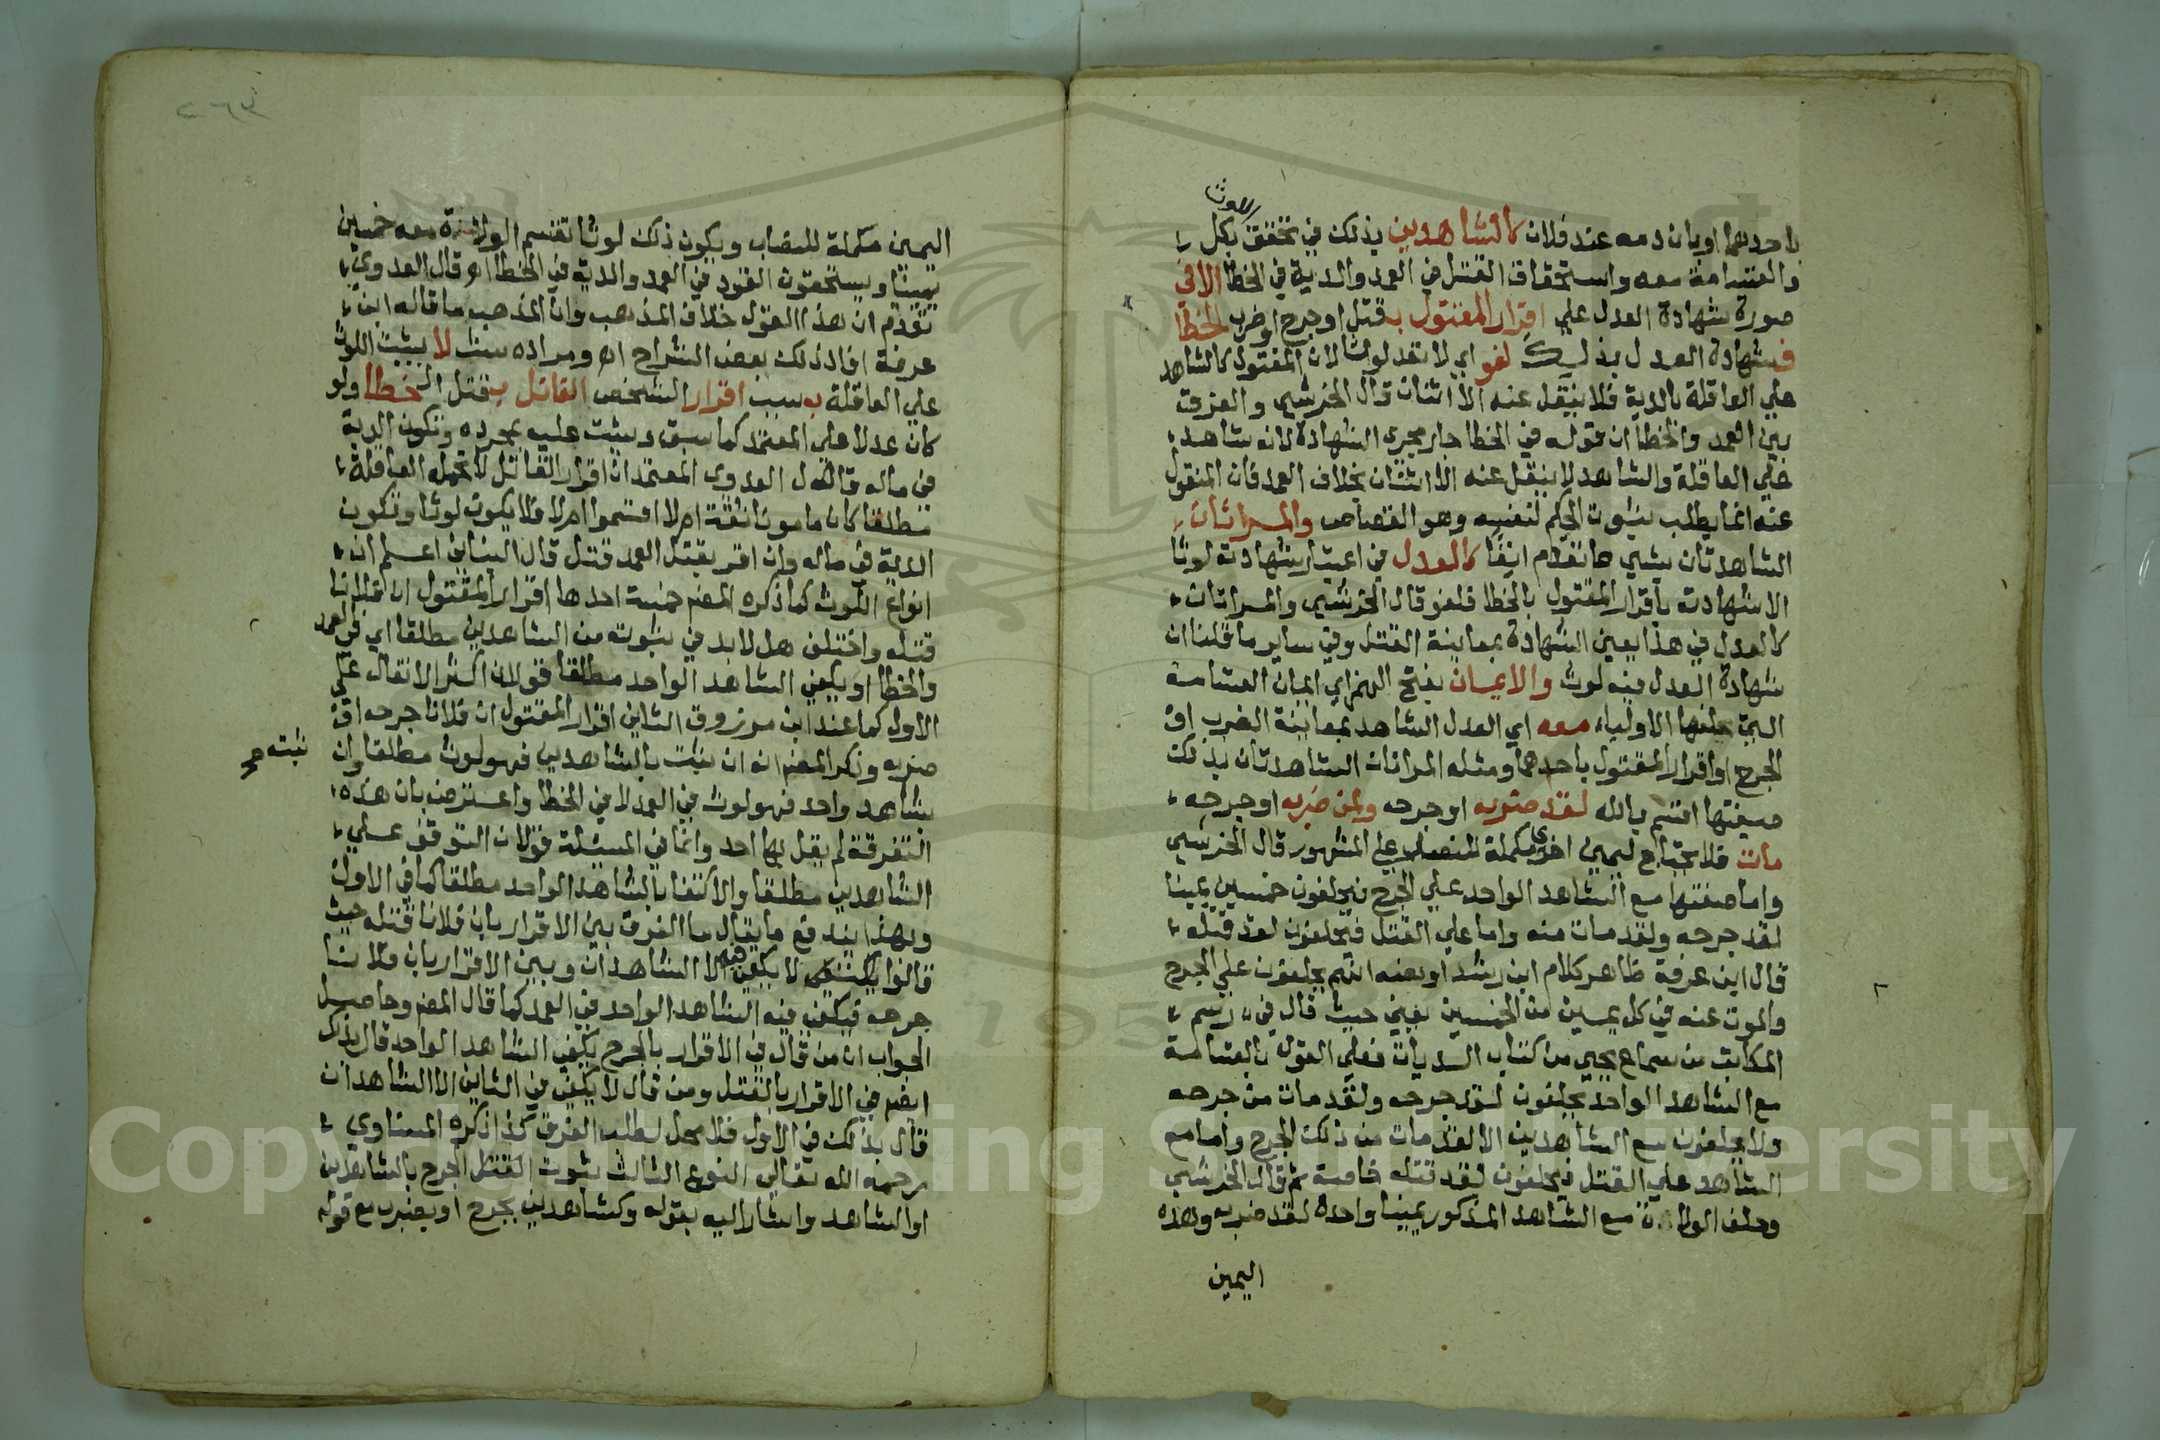 اللوث
باحدهما او بان دمه عند فلان كالشاهدين بذلك في تحقق بكل
والقسامة معه واستحقاق القتل في العمد والدية في الخطا الا في
صورة شهادة العدل علي اقرار المقتول بقتل او جرح او ضرب الخطا
فشهادة العدل بذلك لغو اي لا تعد لوثا لان المقتول كالشاهد
علي العاقلة بالدية فلا ينقل عنه الا اثنان قال الخرشي والفرق
بين العمد والخطا ان قوله في الخطا جار مجري الشهادة لانه شاهد
علي العاقلة والشاهد لا ينقل عنه الا اثنان بخلاف العمد فان المنقول
عنه انما يطلب ثبوت الحكم لنفسه وهو القصاص والمراتان
الشاهدتان بشي مما تقدم انفا كالعدل في اعتبار شهادته لوثا
الا شهادته باقرار المقتول بالخطا فلغو قال الخرشي والمراتان
كالعدل في هذا يعني الشهادة بمعاينة القتل وفي ساير ما قلنا ان
شهادة العدل فيه لوث والايمان بفتح الهمز اي ايمان القسامة
التي حلفها الاولياء معه اي العدل الشاهد بمعاينة الضرب او
الجرح او اقرار المقتول باحدهما ومثله المراتان الشاهدتان بذلك
صيغتها اقسم بالله لقد ضربه او جرحه ولمن ضربه او جرحه
مات فلا يحتاج ليمين اخري مكملة للنصاب علي المشهور قال الخرشي
واما صفتها مع الشاهد الواحد علي الجرح فيحلفون خمسين يمينا
لقد جرحه ولقد مات منه واما علي القتل فيحلفون لقد قتله
قال ابن عرفة ظاهر كلام ابن رشد او نصه انهم يحلفون علي الجرح
والموت عنه في كل يمين من الخمسين يعني حيث قال في رسم
المكاتب من سماع يحيي من كتاب الديات فعلي القول بالقسامة
مع الشاهد الواحد يحلفون لقد جرحه ولقد مات من جرحه
ولا يحلفون مع الشاهدين الا لقد مات من ذلك الجرح واما مع
الشاهد علي القتل فيحلفون لقد قتله خاصة ثم قال الخرشي
وحلف الولاة مع الشاهد المذكور يمينا واحدة لقد ضربه وهذه
اليمين
٢٦٣
اليمين مكملة للنصاب ويكون ذلك لوثا تقسم الولاة معه خمسين
يمينا ويستحقون القود في العمد والدية في الخطا اه قال العدوي
تقدم ان هذا القول خلاف المذهب وان المذهب ما قاله ابن
عرفة افاد ذلك بعض الشراح اه ومراده بنا لا يثبت اللوث
علي العاقلة بسبب اقرار الشخص القاتل بقتل الخطا ولو
كان عدلا علي المعتمد كما سبق ويثبت عليه بمجرده وتكون الدية
في ماله قال العدوي المعتمد ان اقرار القاتل لا تحمله العاقلة
مطلقا كان مامونا ثقة ام لا اقسموا ام لا فلا يكون لوثا وتكون
الدية في ماله وان اقر بقتل العمد قتل قال البناني اعلم ان
انواع اللوث كما ذكره المصنف خمسة احدها اقرار المقتول ان فلانا
قتله واختلف هل لا بد في ثبوته من الشاهدين مطلقا اي في العمد
والخطا او يكفي الشاهد الواحد مطلقا قولان اكثر الانقال علي
الاول كما عند ابن مرزوق الثاني اقرار المقتول ان فلانا جرحه او
ضربه وذكر المصنف انه ان ثبت بالشاهدين فهو لوث مطلقا وان
ثبت
بشاهد واحد فهو لوث في العمد لا في الخطا واعترض بان هذه
التفرقة لم يقل بها احد وانما في المسئلة قولان التوقف علي
الشاهدين مطلقا والاكتفا بالشاهد الواحد مطلقا كما في الاول
وبهذا يندفع ما يقال ما الفرق بين الاقرار بان فلانا قتله حيث
قالوا لا يكفي فيه الا الشاهدان وبين الاقرار بان فلانا
جرحه فيكفي فيه الشاهد الواحد في العمد كما قال المصنف وحاصل
الجواب ان من قال في الاقرار بالجرح يكفي الشاهد الواحد قال بذلك
ايضا في الاقرار بالقتل ومن قال لا يكفي في الثاني الا الشاهدان
قال بذلك في الاول فلا محل لطلب الفرق كذا ذكره المسناوي
رحمه الله تعالي النوع الثالث ثبوت الجرح بالشاهدين
او الشاهد واشار اليه بقوله وكشاهدين بجرح او بضرب مع قوله